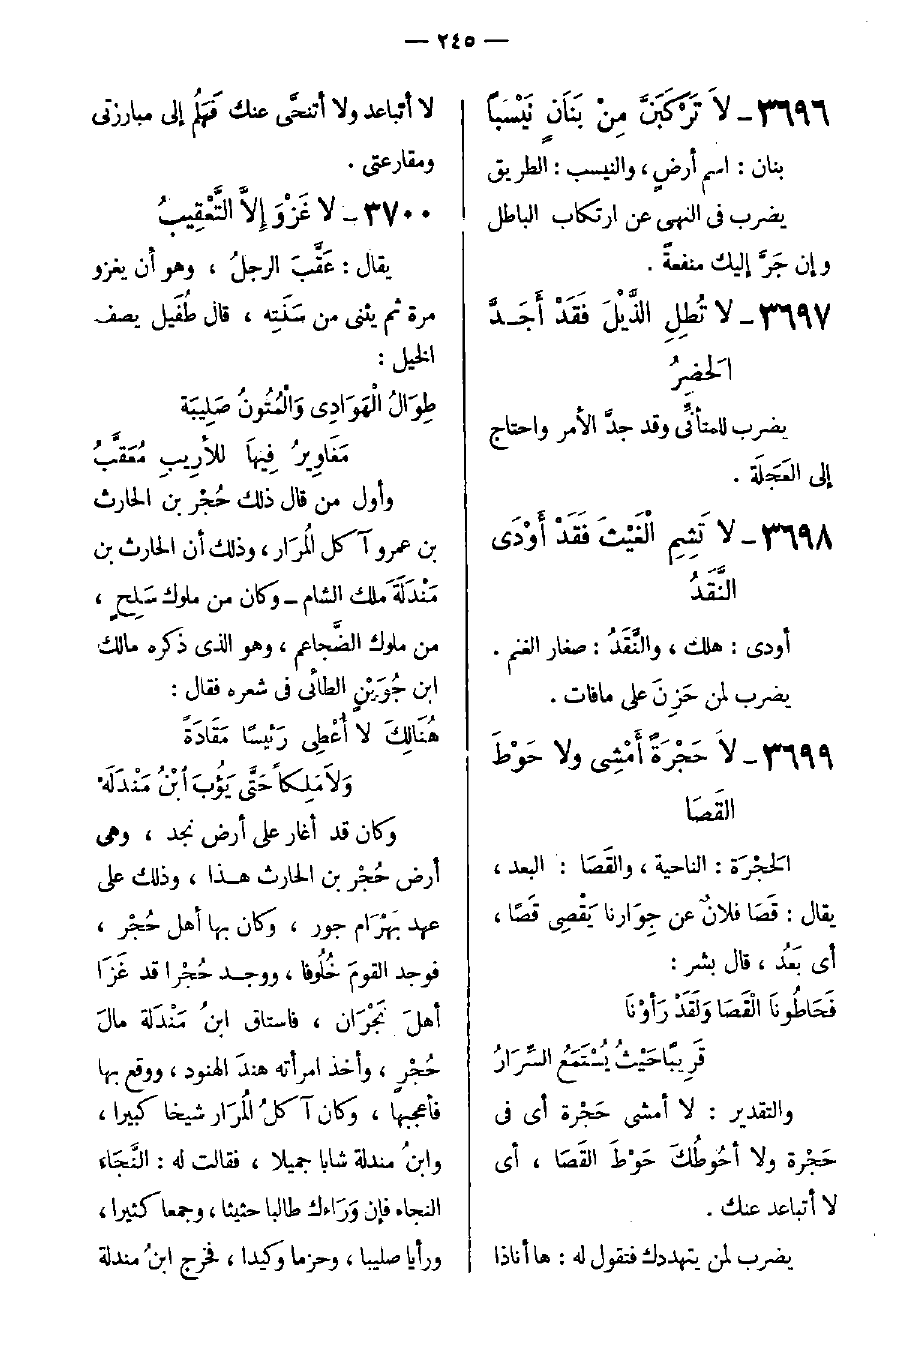 — ٢٤٥ —
٣٦٩٦ـ لاَ تَرْكَبَنَّ مِنْ بَنَانٍ نَيْسَباً
بنان : اسم أرضٍ ، والنيسب : الطريق
يضرب فى النهى عن ارتكاب الباطل
وإن جَرَّ إليك منفعةً .
٣٦٩٧ـ لا تُطِلِ الذَّيْلَ فَقَدْ أَجَـدَّ
الحَضِرُ
يضرب للمتأنِّى وقد جدَّ الأمر واحتاج
إلى العَجَلَة .
٣٦٩٨ـ لا تَشِمِ الْغَيْثَ فَقَدْ أَوْدَى
النَّقَدُ
أودى : هلك ، والنَّقَدُ : صغار الغنم .
يضرب لمن حَزِنَ على مافات .
٣٦٩٩ـ لاَ حَجْرَةً أَمْشِى ولا حَوْطَ
القَصَا
الحَجْرَة : الناحية ، والقَصَا : البعد ،
يقال : قَصَا فلانٌ عن جِوَارنا يَقْصِى قَصًا ،
أى بَعَدُ ، قال بشر :
فَحَاطُونَا الْقَصَا وَلَقَدْ رَأَوْنَا
قَرِيبًا حَيْثُ يُسْتَمَعُ السِّرَارُ
والتقدير : لا أمشى حَجْرة أى فى
حَجْرة ولا أحُوطُكَ حَوْطَ القَصَا ، أى
لا أتباعد عنك .
يضرب لمن يتهددك فتقول له : ها أناذا
لا أتباعد ولا أتنحَّى عنك فَهَلُم إلى مبارزتى
ومقارعتى .
٣٧٠٠ـ لا غَزْوَ إِلاَّ التَّعْقِيبُ
يقال : عَقَّبَ الرجلُ ، وهو أن يغزو
مرة ثم يثنى من سَنَتِه ، قال طُفَيل يصف
الخيل :
طِوَالُ الْهَوَادِى وَالْمُتُونُ صَلِيبَة
مَغَاوِيرُ فِيهَا لِلأَرِيبِ مُعَقَّبُ
وأول من قال ذلك حُجْر بن الحارث
بن عمرو آكل المُرَار ، وذلك أن الحارث بن
مَنْدَلَةَ ملك الشام ـ وكان من ملوك سَلِيحٍ ،
من ملوك الضَّجاعم ، وهو الذى ذكره مالك
ابن جُوَيْنٍ الطائى فى شعره فقال :
هُنَالِكَ لا أُعْطِى رَئِيسًا مَقَادَةً
وَلاَ مَلِكاً حَتَّى يَؤُبَ ابْنُ مَنْدَلَه
وكان قد أغار على أرض نجد ، وهى
أرض حُجْر بن الحارث هـذا ، وذلك على
عهد بَهْرَام جور ، وكان بها أهل حُجْر ،
فوجد القومَ خُلُوفا ، ووجـد حُجْرا قد غَزَا
أهلَ نَجْرَان ، فاستاق ابنُ مَنْدَلة مالَ
حُجْرٍ ، وأخذ امرأته هندَ الهنود ، ووقع بها
فأعجبها ، وكان آكلُ المُرَار شيخا كبيرا ،
وابنُ مندلة شابا جميلا ، فقالت له : النَّجَاء
النجاء فإن وَرَاءك طالبا حثيثا ، وجمعا كثيرا ،
ورأيا صليبا ، وحزما وكيدا ، فخرج ابنُ مندلة